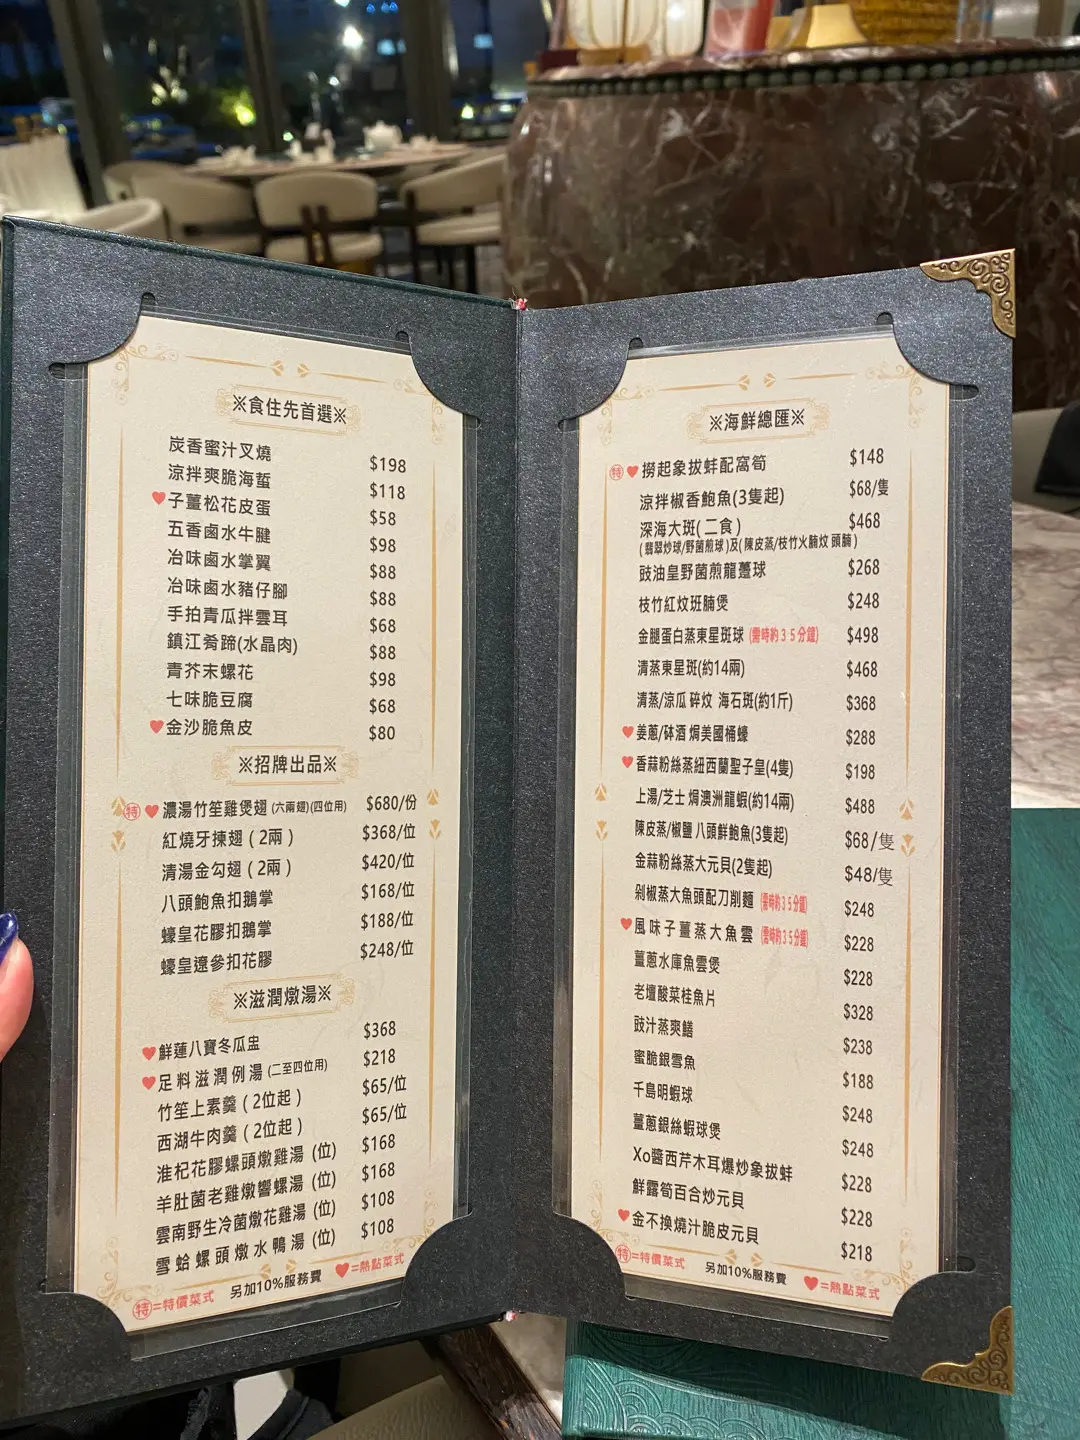 ※食住先首選※
炭香蜜汁叉燒 $198
涼拌爽脆海蜇 $118
♥子薑松花皮蛋 $58
五香鹵水牛腱 $98
冶味鹵水掌翼 $88
冶味鹵水豬仔腳 $88
手拍青瓜拌雲耳 $68
鎮江肴蹄(水晶肉) $88
青芥末螺花 $98
七味脆豆腐 $68
♥金沙脆魚皮 $80
※招牌出品※
特♥濃湯竹笙雞煲翅(六兩翅)(四位用) $680/份
紅燒牙揀翅(2兩) $368/位
清湯金勾翅(2兩) $420/位
八頭鮑魚扣鵝掌 $168/位
蠔皇花膠扣鵝掌 $188/位
蠔皇遼參扣花膠 $248/位
※滋潤燉湯※
♥鮮蓮八寶冬瓜盅 $368
♥足料滋潤例湯(二至四位用) $218
竹笙上素羹(2位起) $65/位
西湖牛肉羹(2位起) $65/位
淮杞花膠螺頭燉雞湯(位) $168
羊肚菌老雞燉響螺湯(位) $168
雲南野生冷菌燉花雞湯(位) $108
雪蛤螺頭燉水鴨湯(位) $108
特=特價菜式 另加10%服務費 ♥=熱點菜式
※海鮮總匯※
特♥撈起象拔蚌配窩筍 $148
涼拌椒香鮑魚(3隻起) $68/隻
深海大斑(二食) $468
(翡翠炒球/野菌煎球)及(陳皮蒸/枝竹火腩炆頭腩)
豉油皇野菌煎龍躉球 $268
枝竹紅炆班腩煲 $248
金腿蛋白蒸東星斑球(需時約35分鐘) $498
清蒸東星斑(約14兩) $468
清蒸/涼瓜碎炆 海石斑(約1斤) $368
♥姜蔥/砵酒焗美國桶蠔 $288
♥香蒜粉絲蒸紐西蘭聖子皇(4隻) $198
上湯/芝士焗澳洲龍蝦(約14兩) $488
陳皮蒸/椒鹽 八頭鮮鮑魚(3隻起) $68/隻
金蒜粉絲蒸大元貝(2隻起) $48/隻
剁椒蒸大魚頭配刀削麵(需時約35分鐘) $248
♥風味子薑蒸大魚雲(需時約35分鐘) $228
薑蔥水庫魚雲煲 $228
老壇酸菜桂魚片 $328
豉汁蒸爽鱔 $238
蜜脆銀雪魚 $188
千島明蝦球 $248
薑蔥銀絲蝦球煲 $248
Xo醬西芹木耳爆炒象拔蚌 $228
鮮露筍百合炒元貝 $228
♥金不換燒汁脆皮元貝 $218
特=特價菜式 另加10%服務費 ♥=熱點菜式